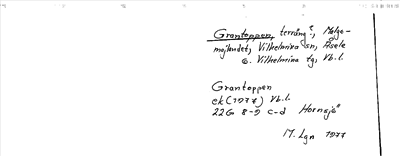 Grantoppen, terräng?, Malgo-
majlandet, Vilhelmina sn, Åsele
o. Vilhelmina tg, Vb.l.
Grantoppen
ek (1977) Vb.l.
22G 8-9 c-d Hornsjö"
M. Lgn 1977